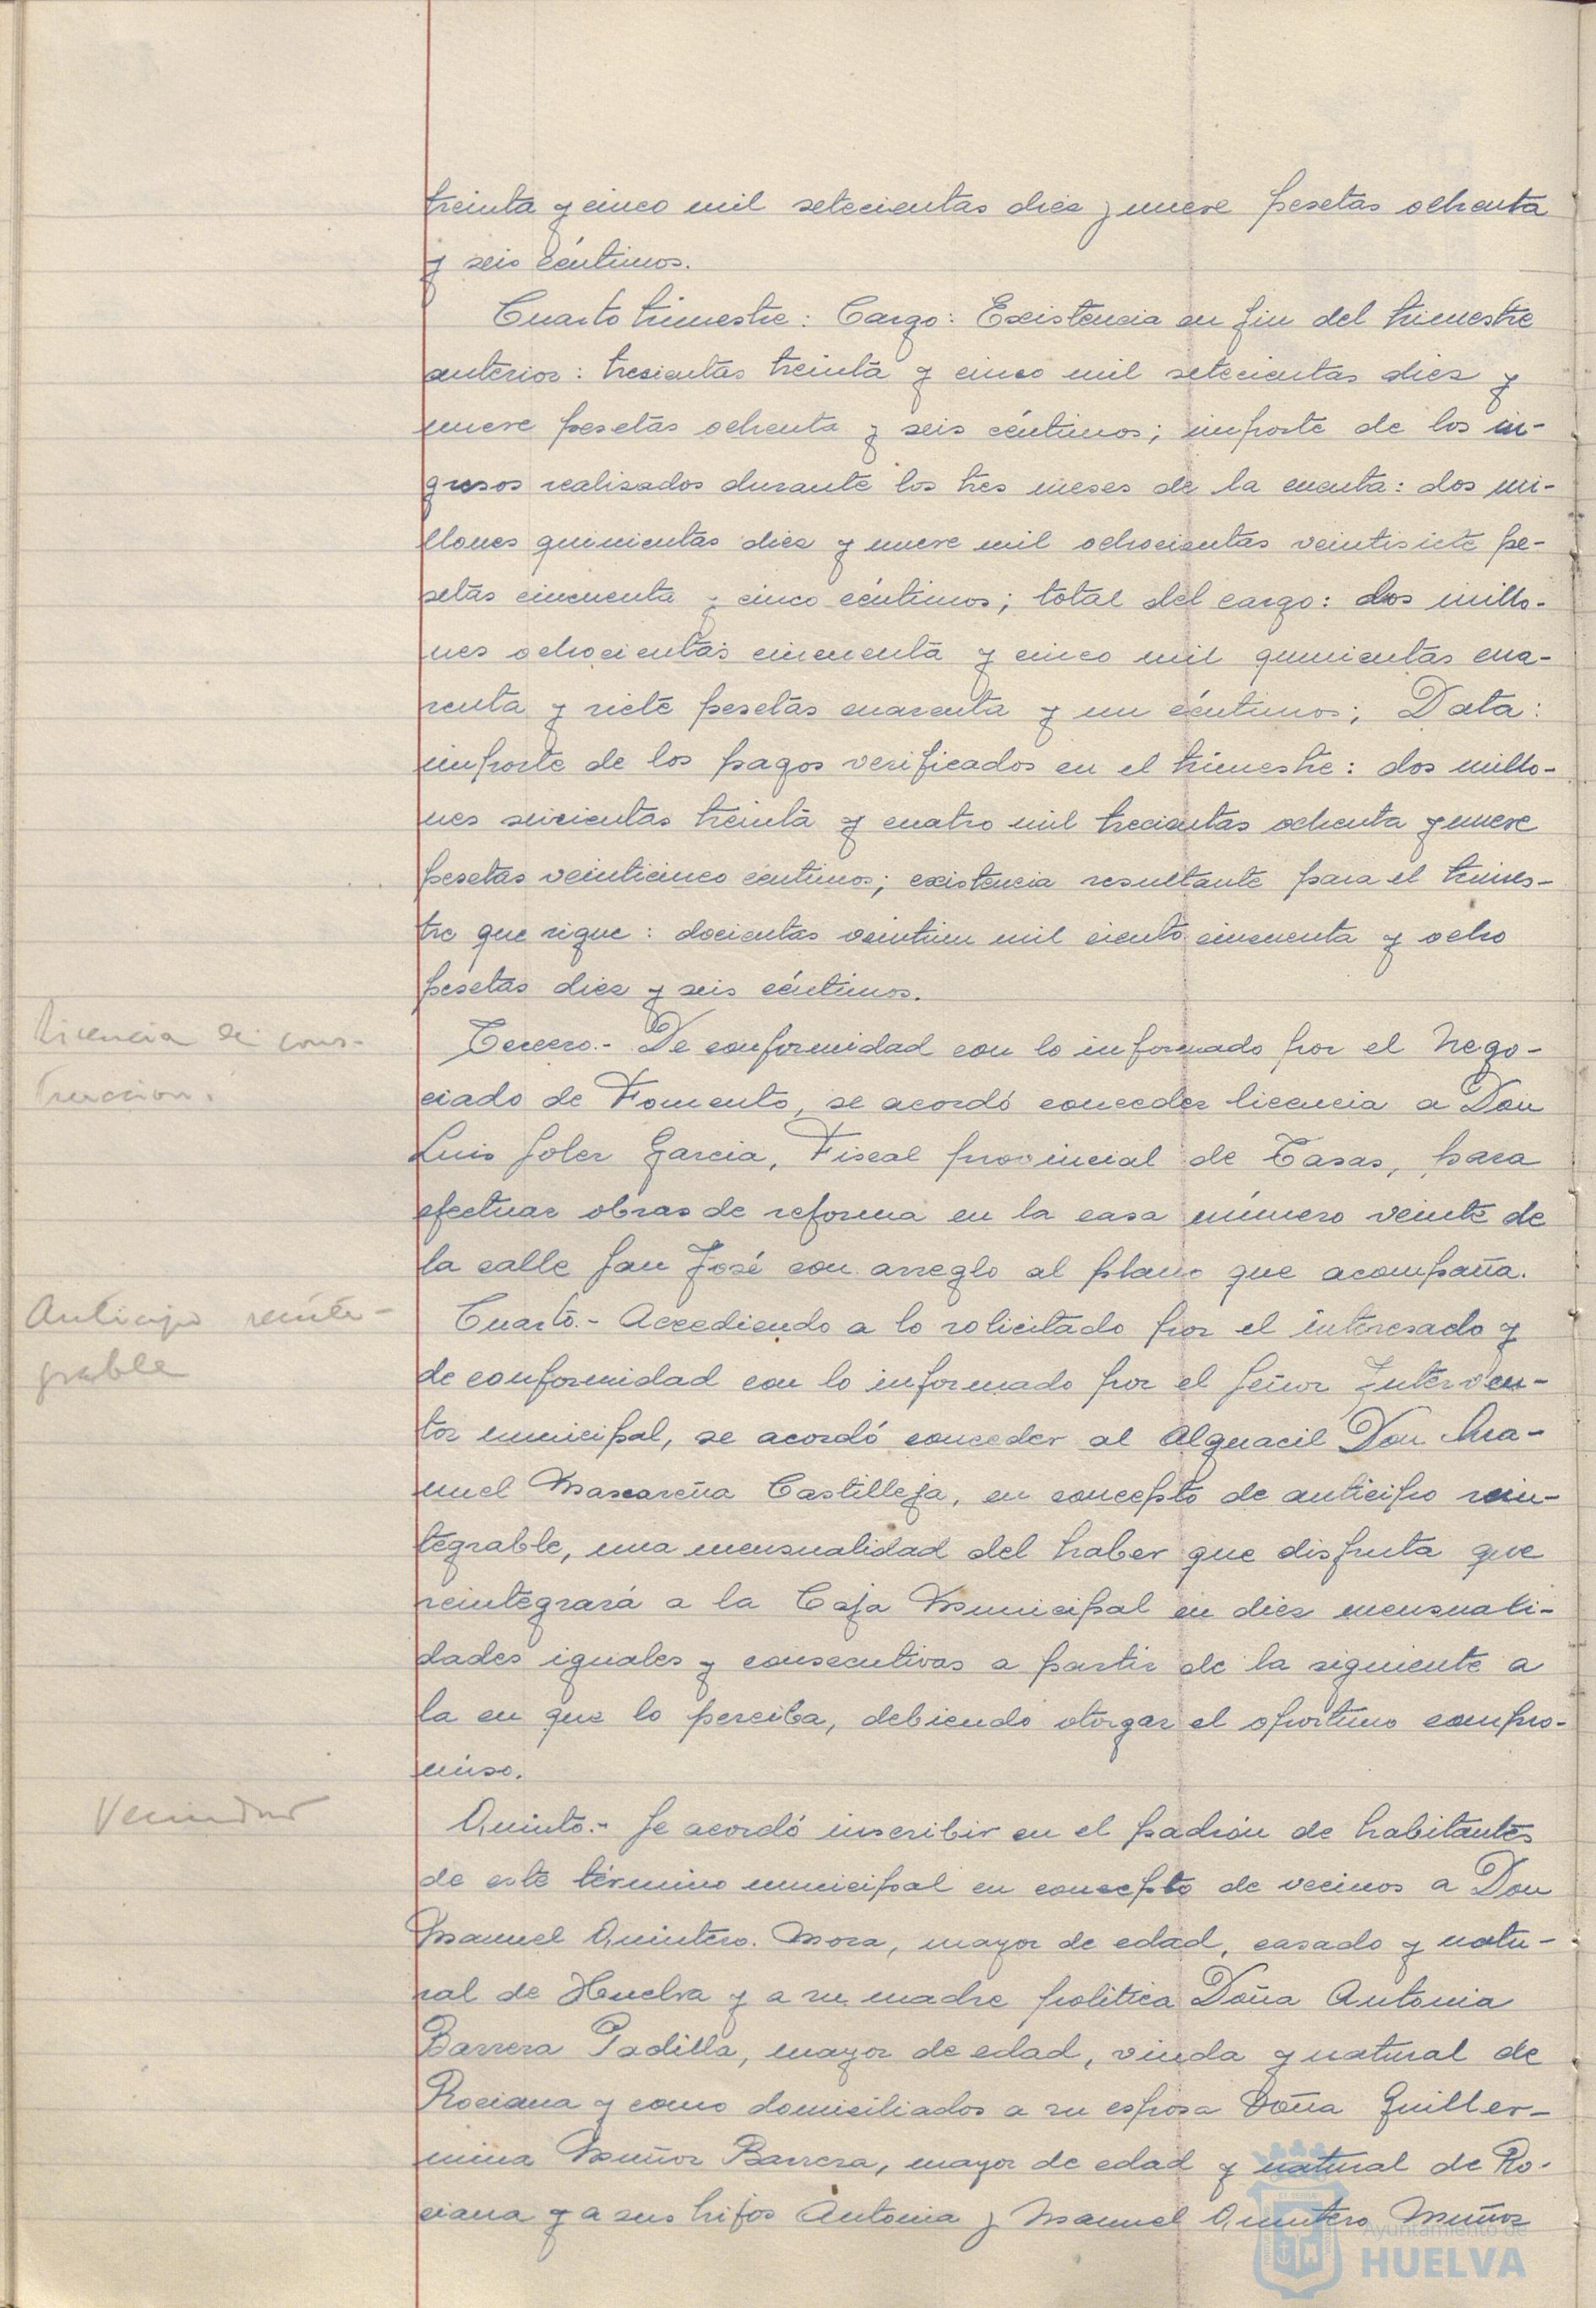 treinta y cinco mil setecientas diez y nueve pesetas ochenta
y seis céntimos.
Cuarto trimestre: Cargo: Existencia en fin del trimestre
anterior: trescientas treinta y cinco mil setecientas diez y
nueve pesetas ochenta y seis céntimos; importe de los in-
gresos realizados durante los tres meses de la cuenta: dos mi-
llones quinientas diez y nueve mil ochocientas veintisiete pe-
setas cincuenta y cinco céntimos; total del cargo: dos millo-
nes ochocientas cincuenta y cinco mil quinientas cua-
renta y siete pesetas cuarenta y un céntimos; Data:
importe de los pagos verificados en el trimestre: dos millo-
nes seicientas treinta y cuatro mil trecientas ochenta y nueve
pesetas veinticinco céntimos; existencia resultante para el trimes-
tre que sigue: docientas veintiun mil ciento cincuenta y ocho
pesetas diez y seis céntimos.
Licencia de cons-
trucción.
Tercero.- De conformidad con lo informado por el Nego-
ciado de Fomento, se acordó conceder licencia a Don
Luis Soler Garcia, Fiscal provincial de Tasas, para
efectuar obras de reforma en la casa número veinte de
la calle San José con arreglo al plano que acompaña.
Anticipo reinte-
grable
Cuarto.- Accediendo a lo solicitado por el interesado y
de conformidad con lo informado por el Señor Interven-
tor municipal, se acordó conceder al Alguacil Don Ma-
nuel Mascareña Castilleja, en concepto de anticipo rein-
tegrable, una mensualidad del haber que disfruta que
reintegrará a la Caja Municipal en diez mensuali-
dades iguales y consecutivas a partir de la siguiente a
la en que lo perciba, debiendo otorgar el oportuno compro-
miso.
Vecindad
Quinto.- Se acordó inscribir en el padrón de habitantes
de este término municipal en concepto de vecinos a Don
Manuel Quintero Mora, mayor de edad, casado y natu-
ral de Huelva y a su madre política Doña Antonia
Barrera Padilla, mayor de edad, viuda y natural de
Rociana y como domiciliados a su esposa Doña Guiller-
mina Muñoz Barrera, mayor de edad y natural de Ro-
ciana y a sus hijos Antonia y Manuel Quintero Muñoz
Ayuntamiento de
HUELVA